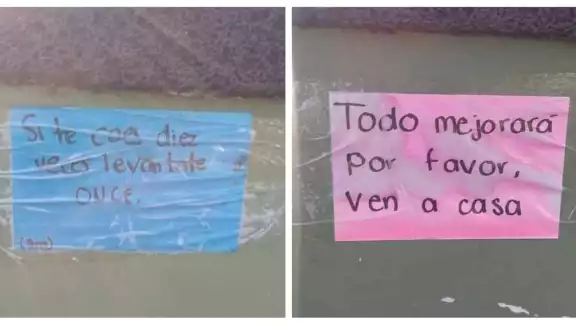 Si te cae diez
veces levantate
once.
Todo mejorará
por favor,
ven a casa